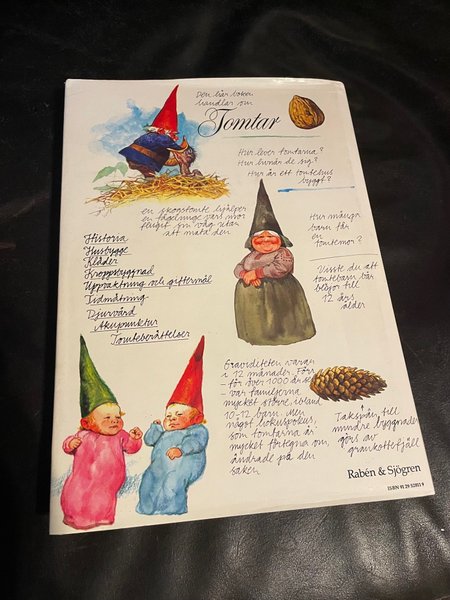 Den här boken
handlar om
Tomtar
Hur lever tomtarna?
Hur beter de sig?
Hur är ett tomtehus
byggt?
en skogstomte hjälper
en fågelunge vars mor
flugit sin väg utan
att mata den
Historia
Husbygge
Kläder
Kroppsbyggnad
Uppvaktning och giftermål
Tidmätning
Djurvård
Akupunktur
Tomteberättelser
Hur många
barn får
en
tomtemor?
Visste du att
tomtebarn bär
blöjor till
12 års
ålder
Graviditeten varar
i 12 månader. Förr
- för över 1000 år se
- var familjerna
mycket större, ibland
10-12 barn. Men
något hokuspokus,
som tomtarna är
mycket förtegna om,
ändrade på den
saken
Takspån till
mindre byggnader
görs av
grankottefjäll
Rabén & Sjögren
ISBN 91 29 52811 8